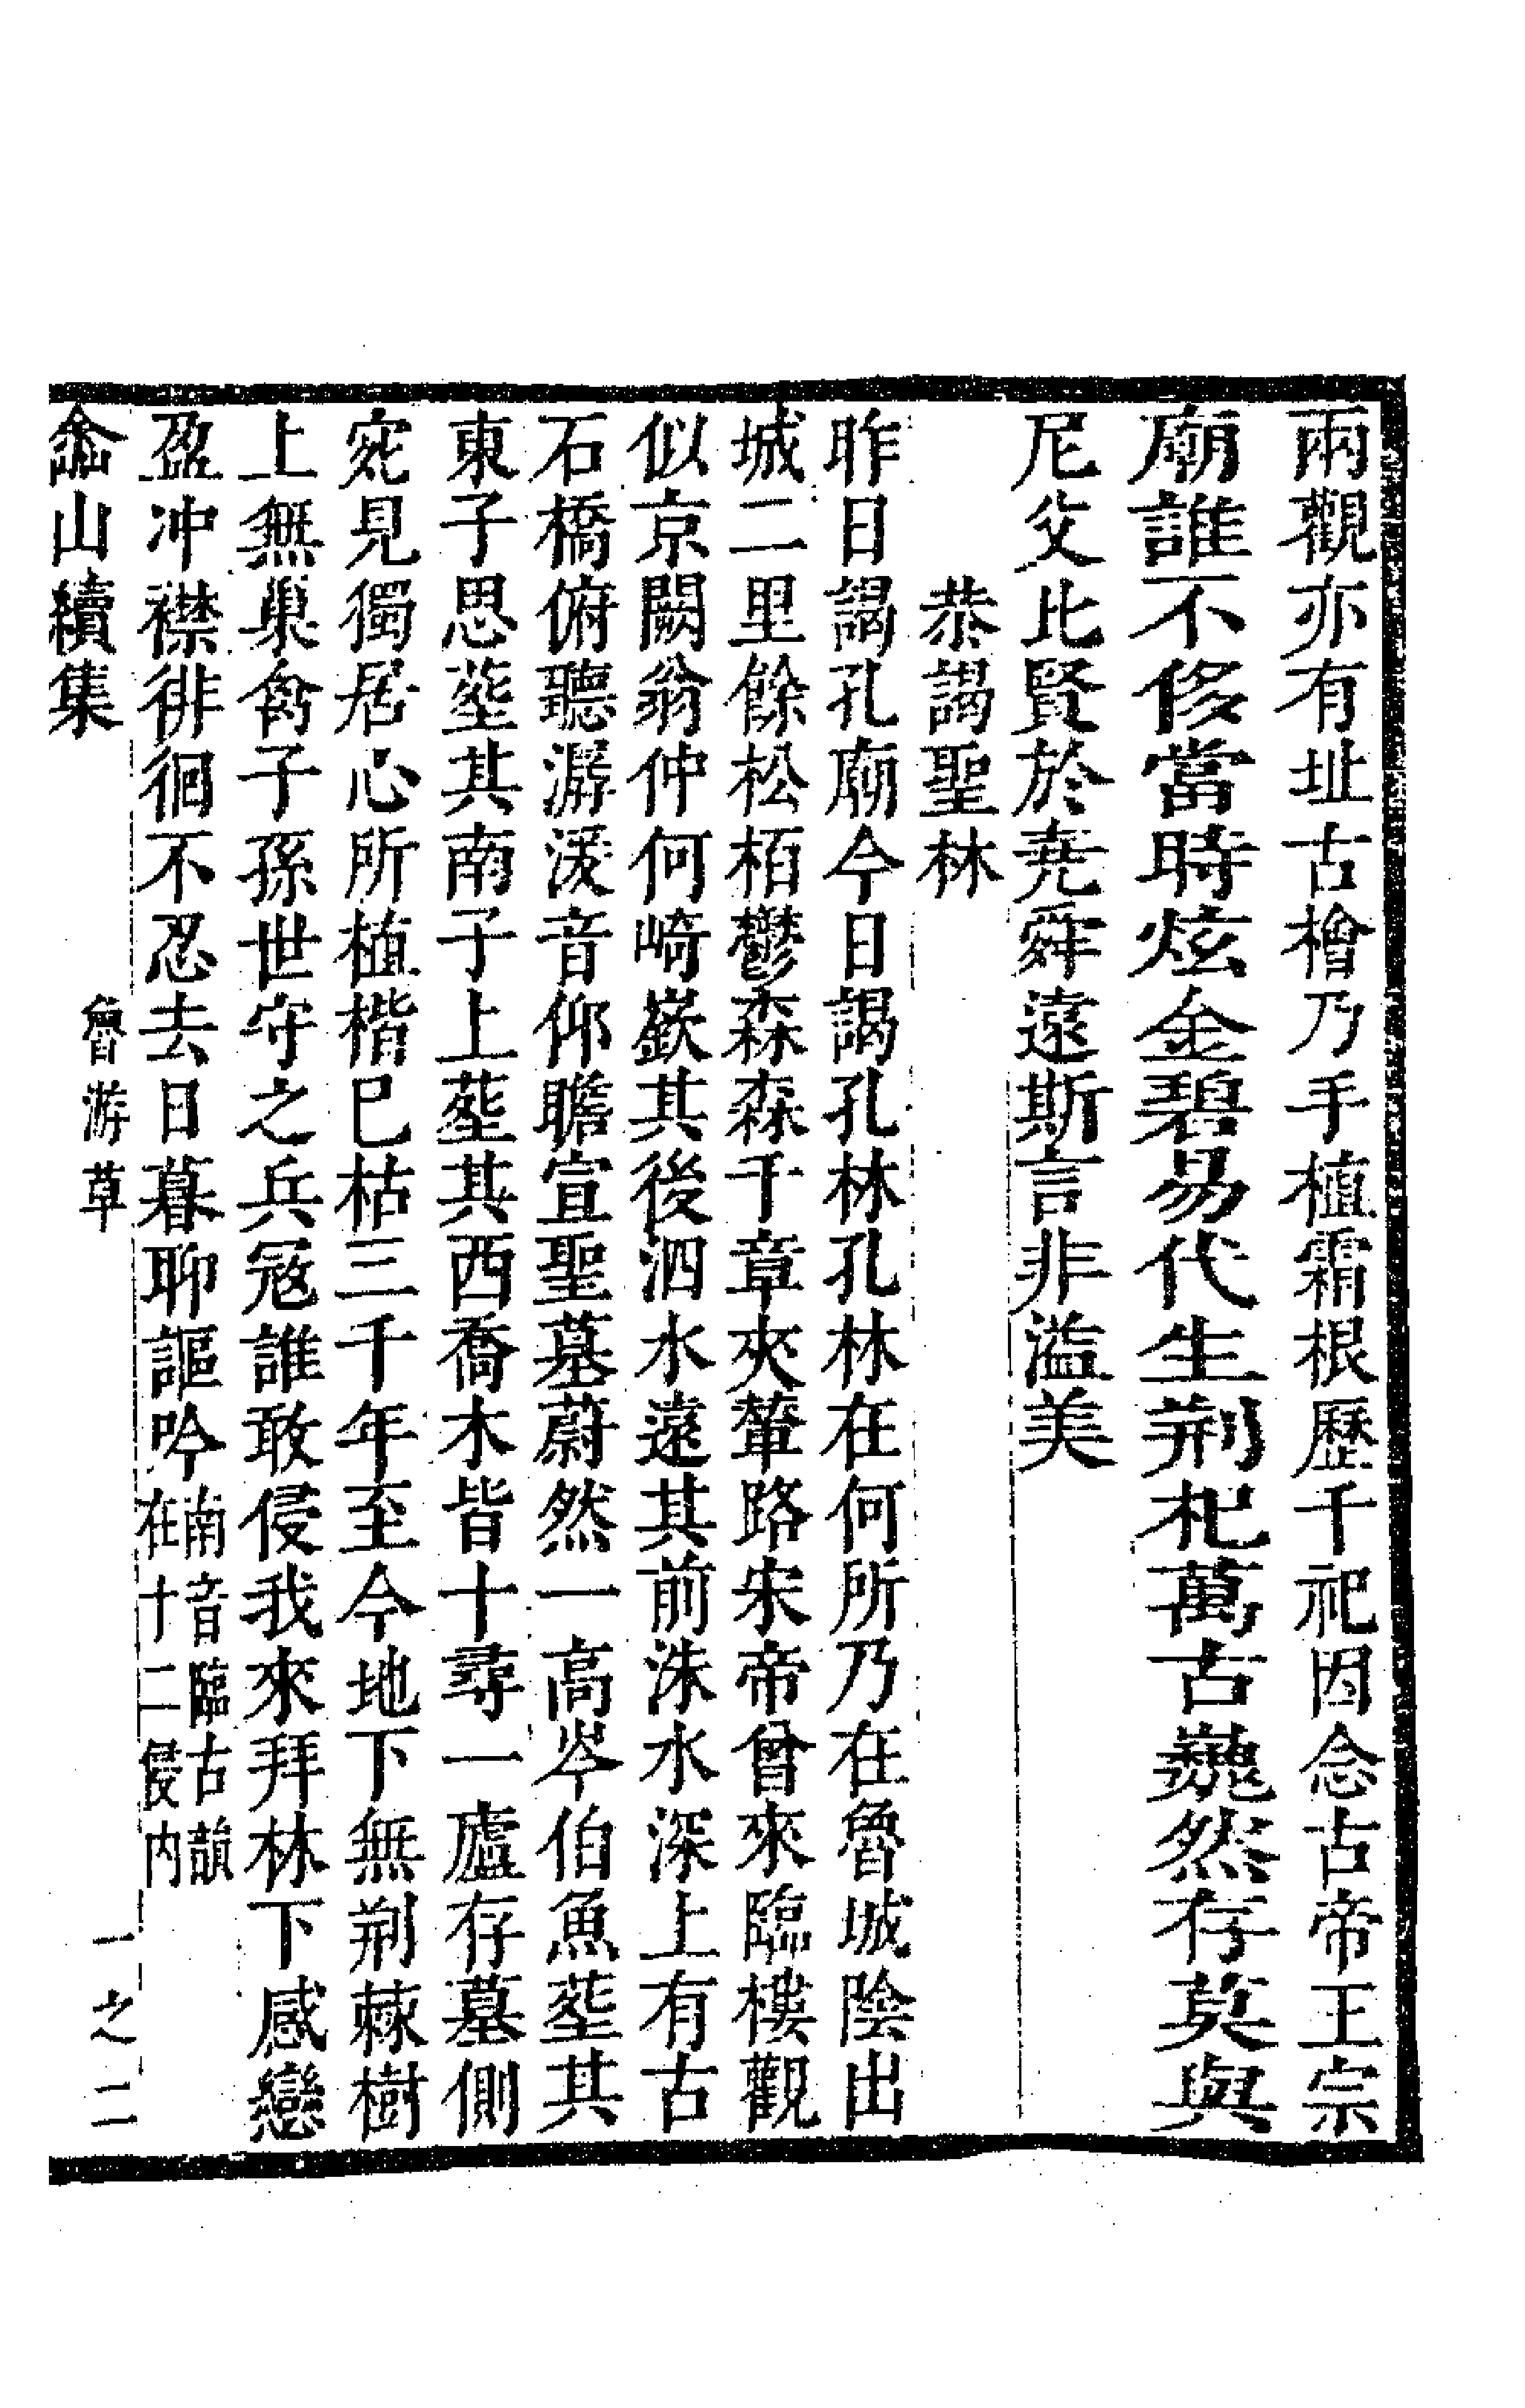 兩觀亦有址古檜乃手植霜根歷千祀因念古帝王宗
廟誰不侈當時炫金碧易代生荆杞萬古巍然存莫與
尼父比賢於堯舜遠斯言非溢美
恭謁聖林
昨日謁孔廟今日謁孔林孔林在何所乃在魯城陰出
城二里餘松栢鬱森森千章夾輦路宋帝曾來臨樓觀
似京闕翁仲何崎嶔其後泗水遠其前洙水深上有古
石橋俯聽潺湲音仰瞻宣聖墓蔚然一高岑伯魚塟其
東子思塟其南子上塟其西喬木皆十尋一廬存墓側
宛見獨居心所植楷已枯三千年至今地下無荆棘樹
上無巢禽子孫世守之兵冦誰敢侵我來拜林下感戀
盈冲襟徘徊不忍去日暮聊謳吟南音臨古韻
在十二侵内
山續集
魯游草
一之二